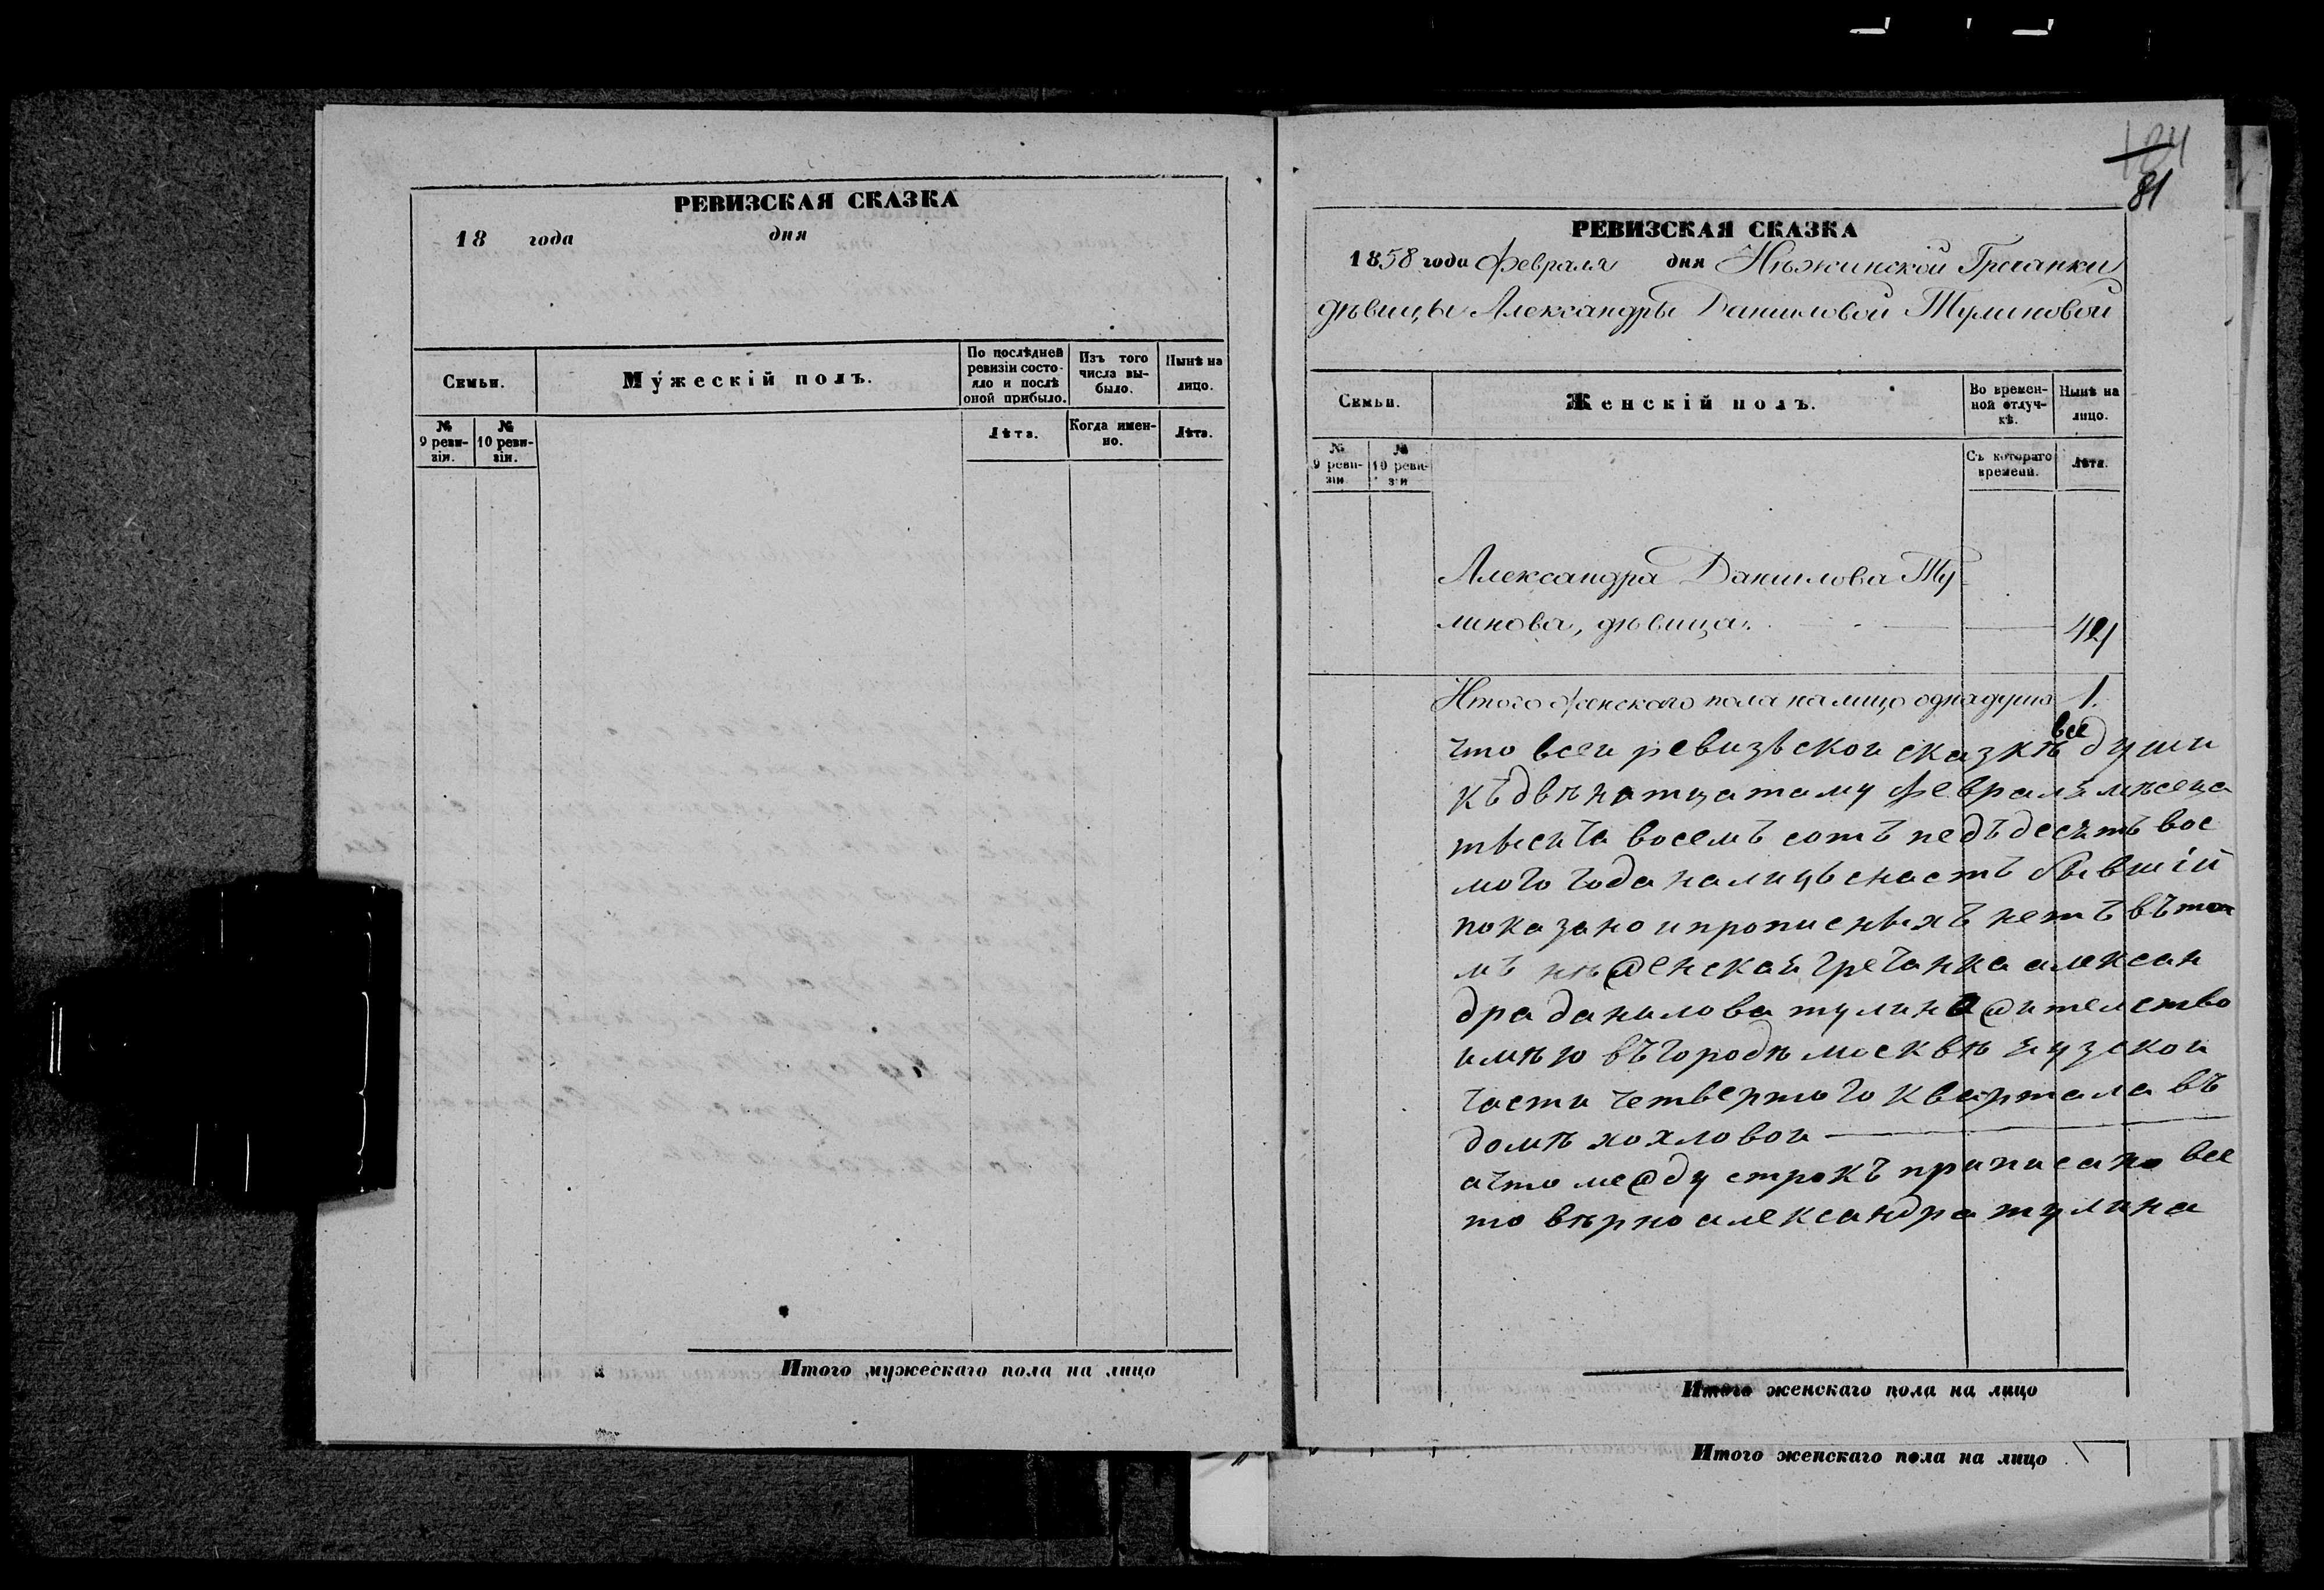 РЕВИЗСКАЯ СКАЗКА
18 года дня
Семьи.
Мужескій полъ.
По послѣдней ревизіи состояло и послѣ оной прибыло.
Изъ того числа выбыло.
Нынѣ на лицо.
№ 9 ревизіи.
№ 10 ревизіи.
Лѣта.
Когда именно.
Лѣта.
Итого мужескаго пола на лицо
81
РЕВИЗСКАЯ СКАЗКА
1858 года Февраля дня Нѣжинской Гречанки
дѣвицы Александры Даниловой Тулиновой
Семьи.
Женскій полъ.
Во временной отлучкѣ.
Нынѣ на лицо.
№ 9 ревизіи
№ 10 ревизіи
Съ котораго времени.
Лѣта.
Александра Данилова Ту
линова, дѣвица.
Итого женскаго пола на лицо одна душа 1.
что всеи ревизской сказкѣ все души
къ двѣнатцатому февраля мѣсеца
тысича восемъ сотъ педъдесятъ вос
мого года налицъ снастъ бывшій
показано и прописныхъ нетъ въ то
мъ нѣженская гречанка алексан
дра данилова тулина жителство
имѣю въ городѣ москвѣ яузскои
части четвертого квартала въ
домѣ хохловои
ачто между строкъ приписано все
то вѣрно александра тулина
Итого женскаго пола на лицо
Итого женскаго пола на лицо